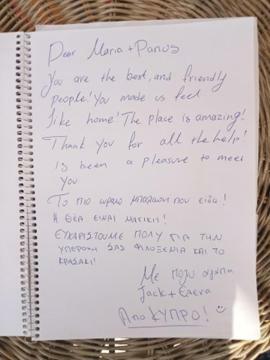 Dear Maria + Panos
You are the best, and friendly
people! You made us feel
like home! The place is amazing!
Thank you for all the help!
Is been a pleasure to meet
you
Το πιο ωραίο μπαλκόνι που είδα!
Η ΘΕΑ ΕΙΝΑΙ ΜΑΓΙΚΗ!
ΕΥΧΑΡΙΣΤΟΥΜΕ ΠΟΛΥ ΓΙΑ ΤΗΝ
ΥΠΕΡΟΧΗ ΣΑΣ ΦΙΛΟΞΕΝΙΑ ΚΑΙ ΤΟ
ΚΡΑΣΑΚΙ!
Με πολύ αγάπη
Jack + Έλενα
Από ΚΥΠΡΟ!